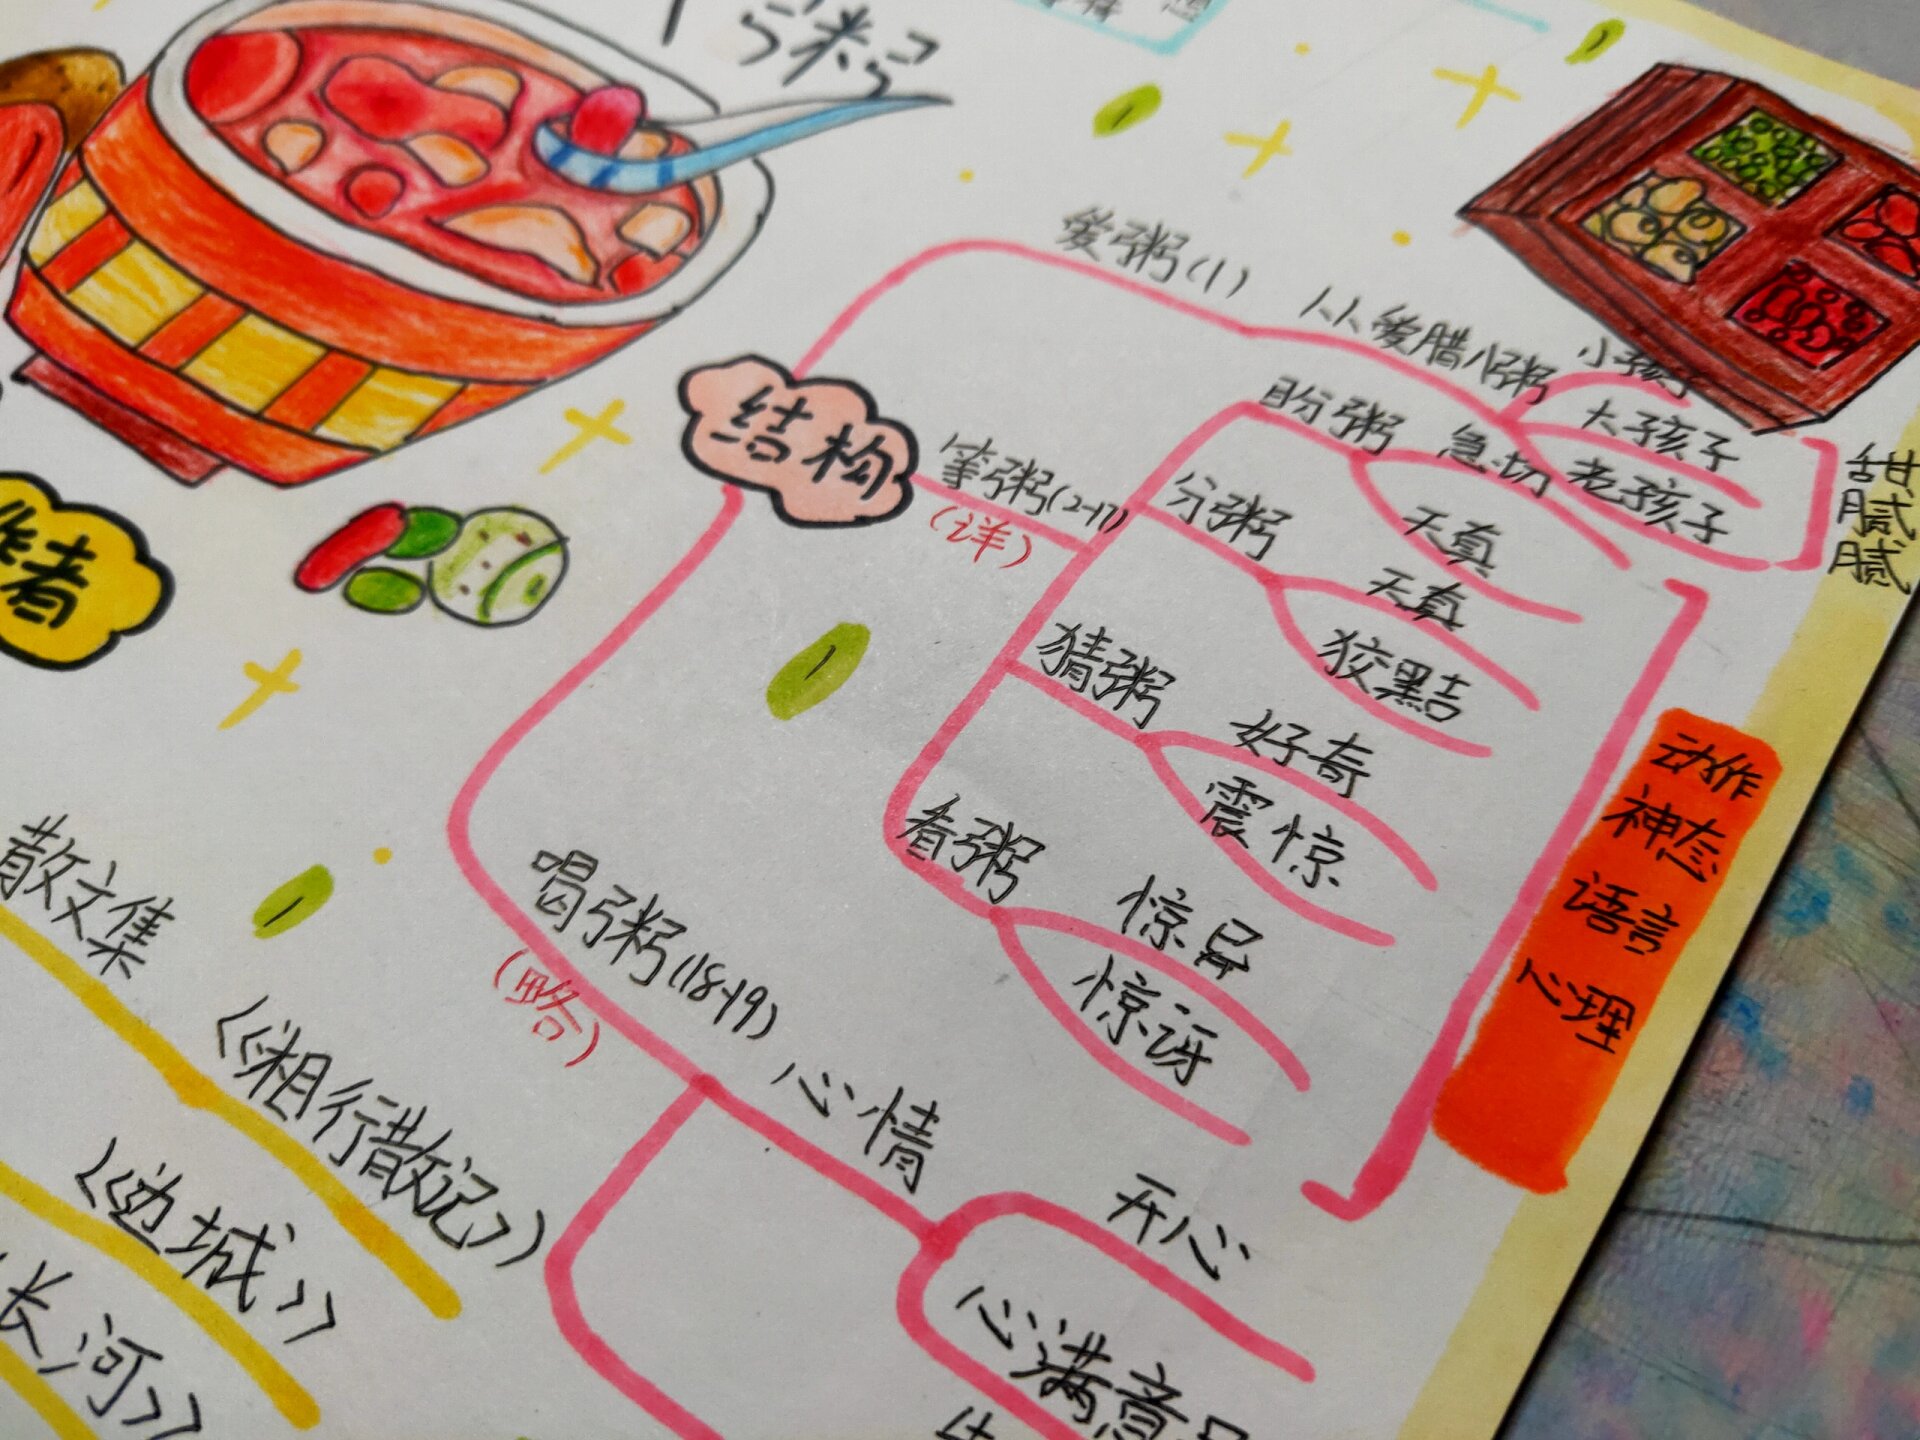 粥
作者
结构
爱粥(1)
人人爱腊八粥
小孩子
大孩子
老孩子
甜腻腻
等粥(2-17)
(详)
盼粥
急切
天真
分粥
天真
狡黠
猜粥
好奇
震惊
看粥
惊异
惊讶
动作
神态
语言
心理
喝粥(18-19)
(略)
心情
开心
心满意
散文集
《湘行散记》
《边城》
长河》